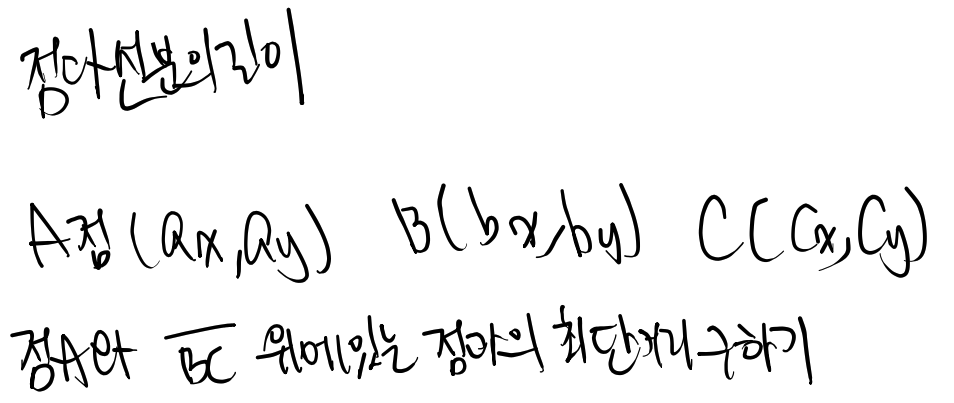 점과 선분의 길이
A점(ax,ay) B(bx,by) C(Cx,Cy)
점A와 BC 위에있는 점과의 최단거리 구하기